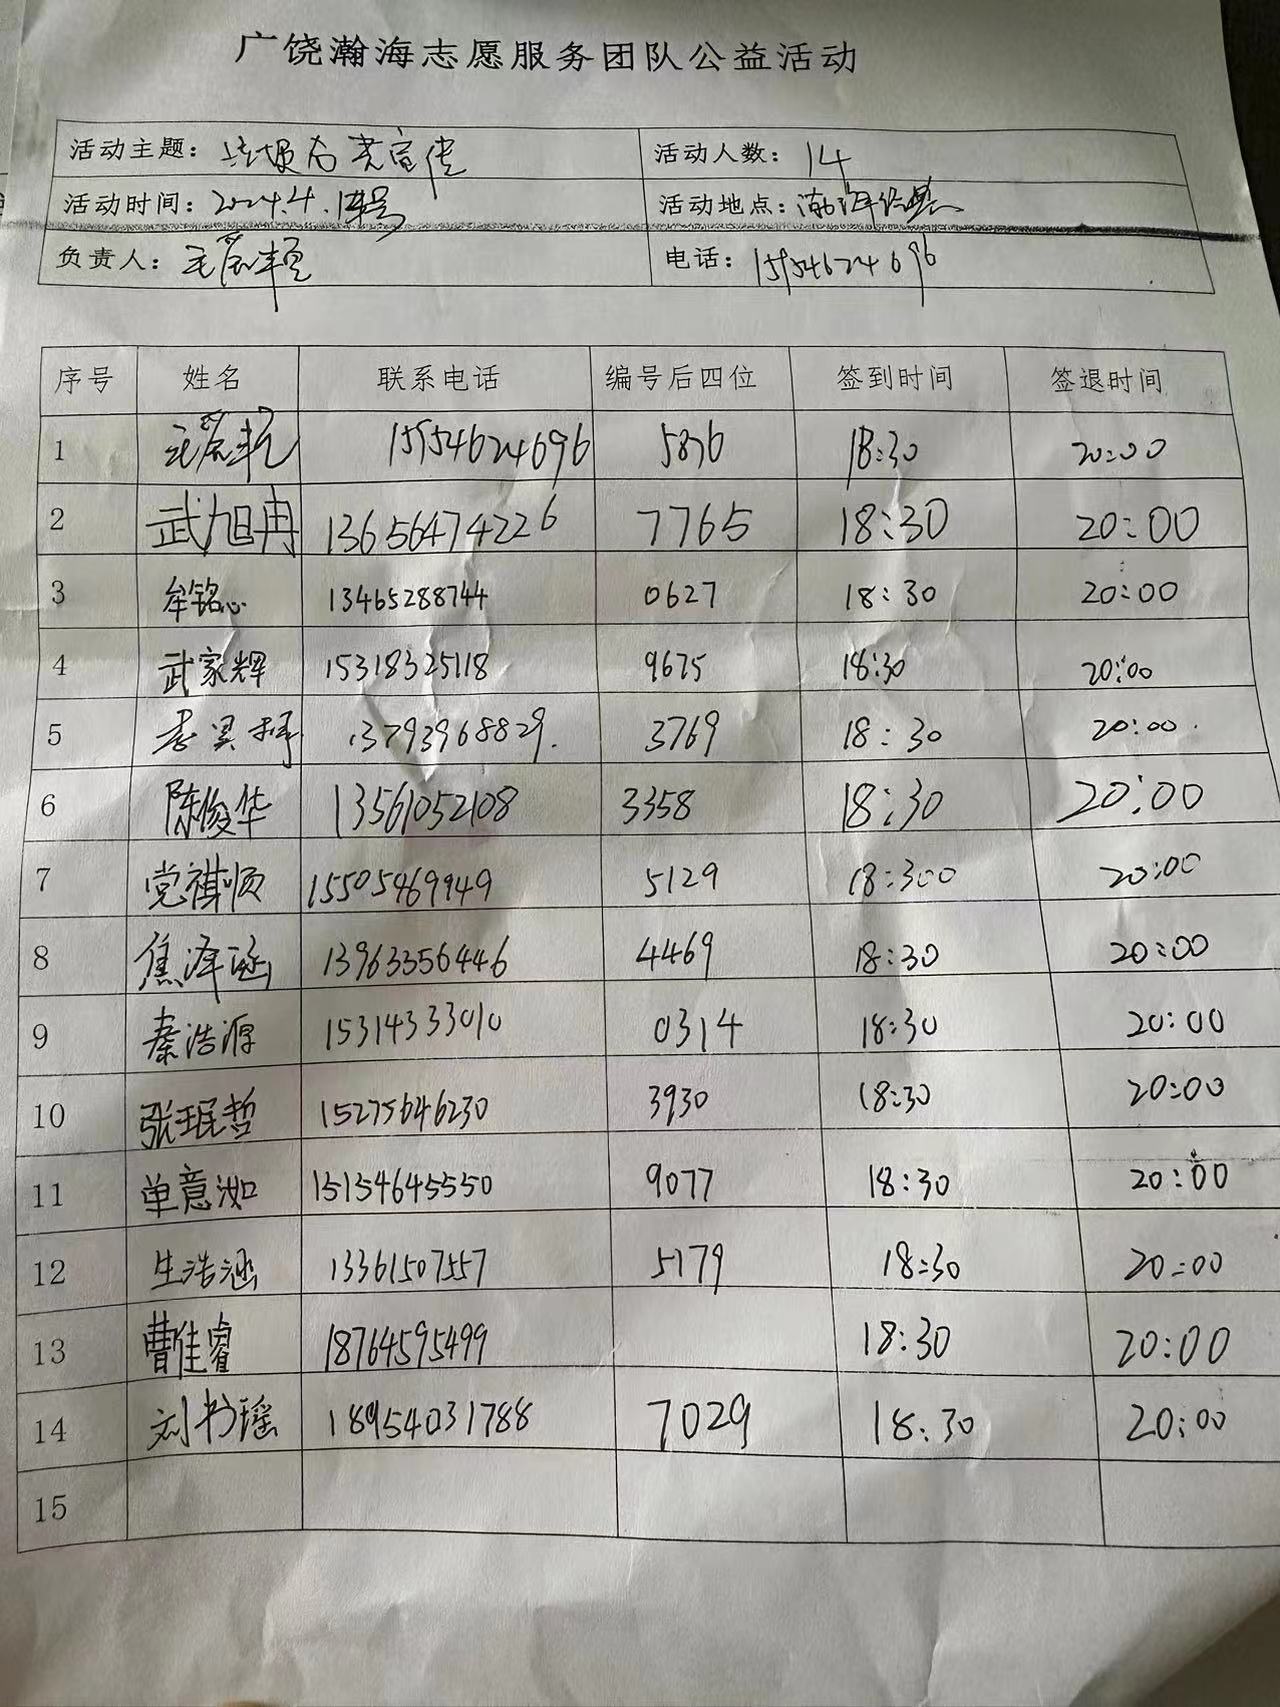 广饶瀚海志愿服务团队公益活动
活动主题：垃圾分类宣传 活动人数：14
活动时间：2024.4. 号 活动地点：渤海经典
负责人： 电话：15954624696
序号 姓名 联系电话 编号后四位 签到时间 签退时间
1 15954624696 5876 18:30 20:00
2 武旭冉 13656474226 7765 18:30 20:00
3 牟铭心 13465288744 0627 18:30 20:00
4 武家辉 15318325118 9675 18:30 20:00
5 李昊 13793968829. 3769 18:30 20:00.
6 陈俊华 13561052108 3358 18:30 20:00
7 党祺顺 15505469949 5129 18:300 20:00
8 焦泽涵 13963356446 4469 18:30 20:00
9 秦浩源 15314333010 0314 18:30 20:00
10 张珉哲 15275646230 3930 18:30 20:00
11 单意汝 15154645550 9077 18:30 20:00
12 生浩涵 13361507557 5179 18:30 20:00
13 曹佳睿 18764595499 18:30 20:00
14 刘书瑶 18954031788 7029 18:30 20:00
15